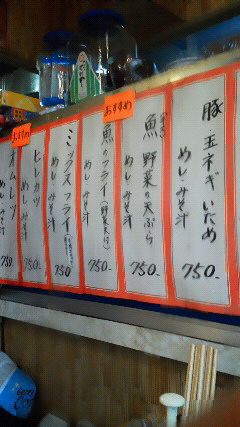 豚玉ネギいため
めし・みそ汁
750-
魚野菜の天ぷら
めし・みそ汁
750-
おすすめ
魚のフライ(野菜天付)
めし・みそ汁
750-
ミックスフライ
めし・みそ汁
750-
ヒレカツ
めし・みそ汁
750-
おすすめ
オムレツ
めし・みそ汁
750-